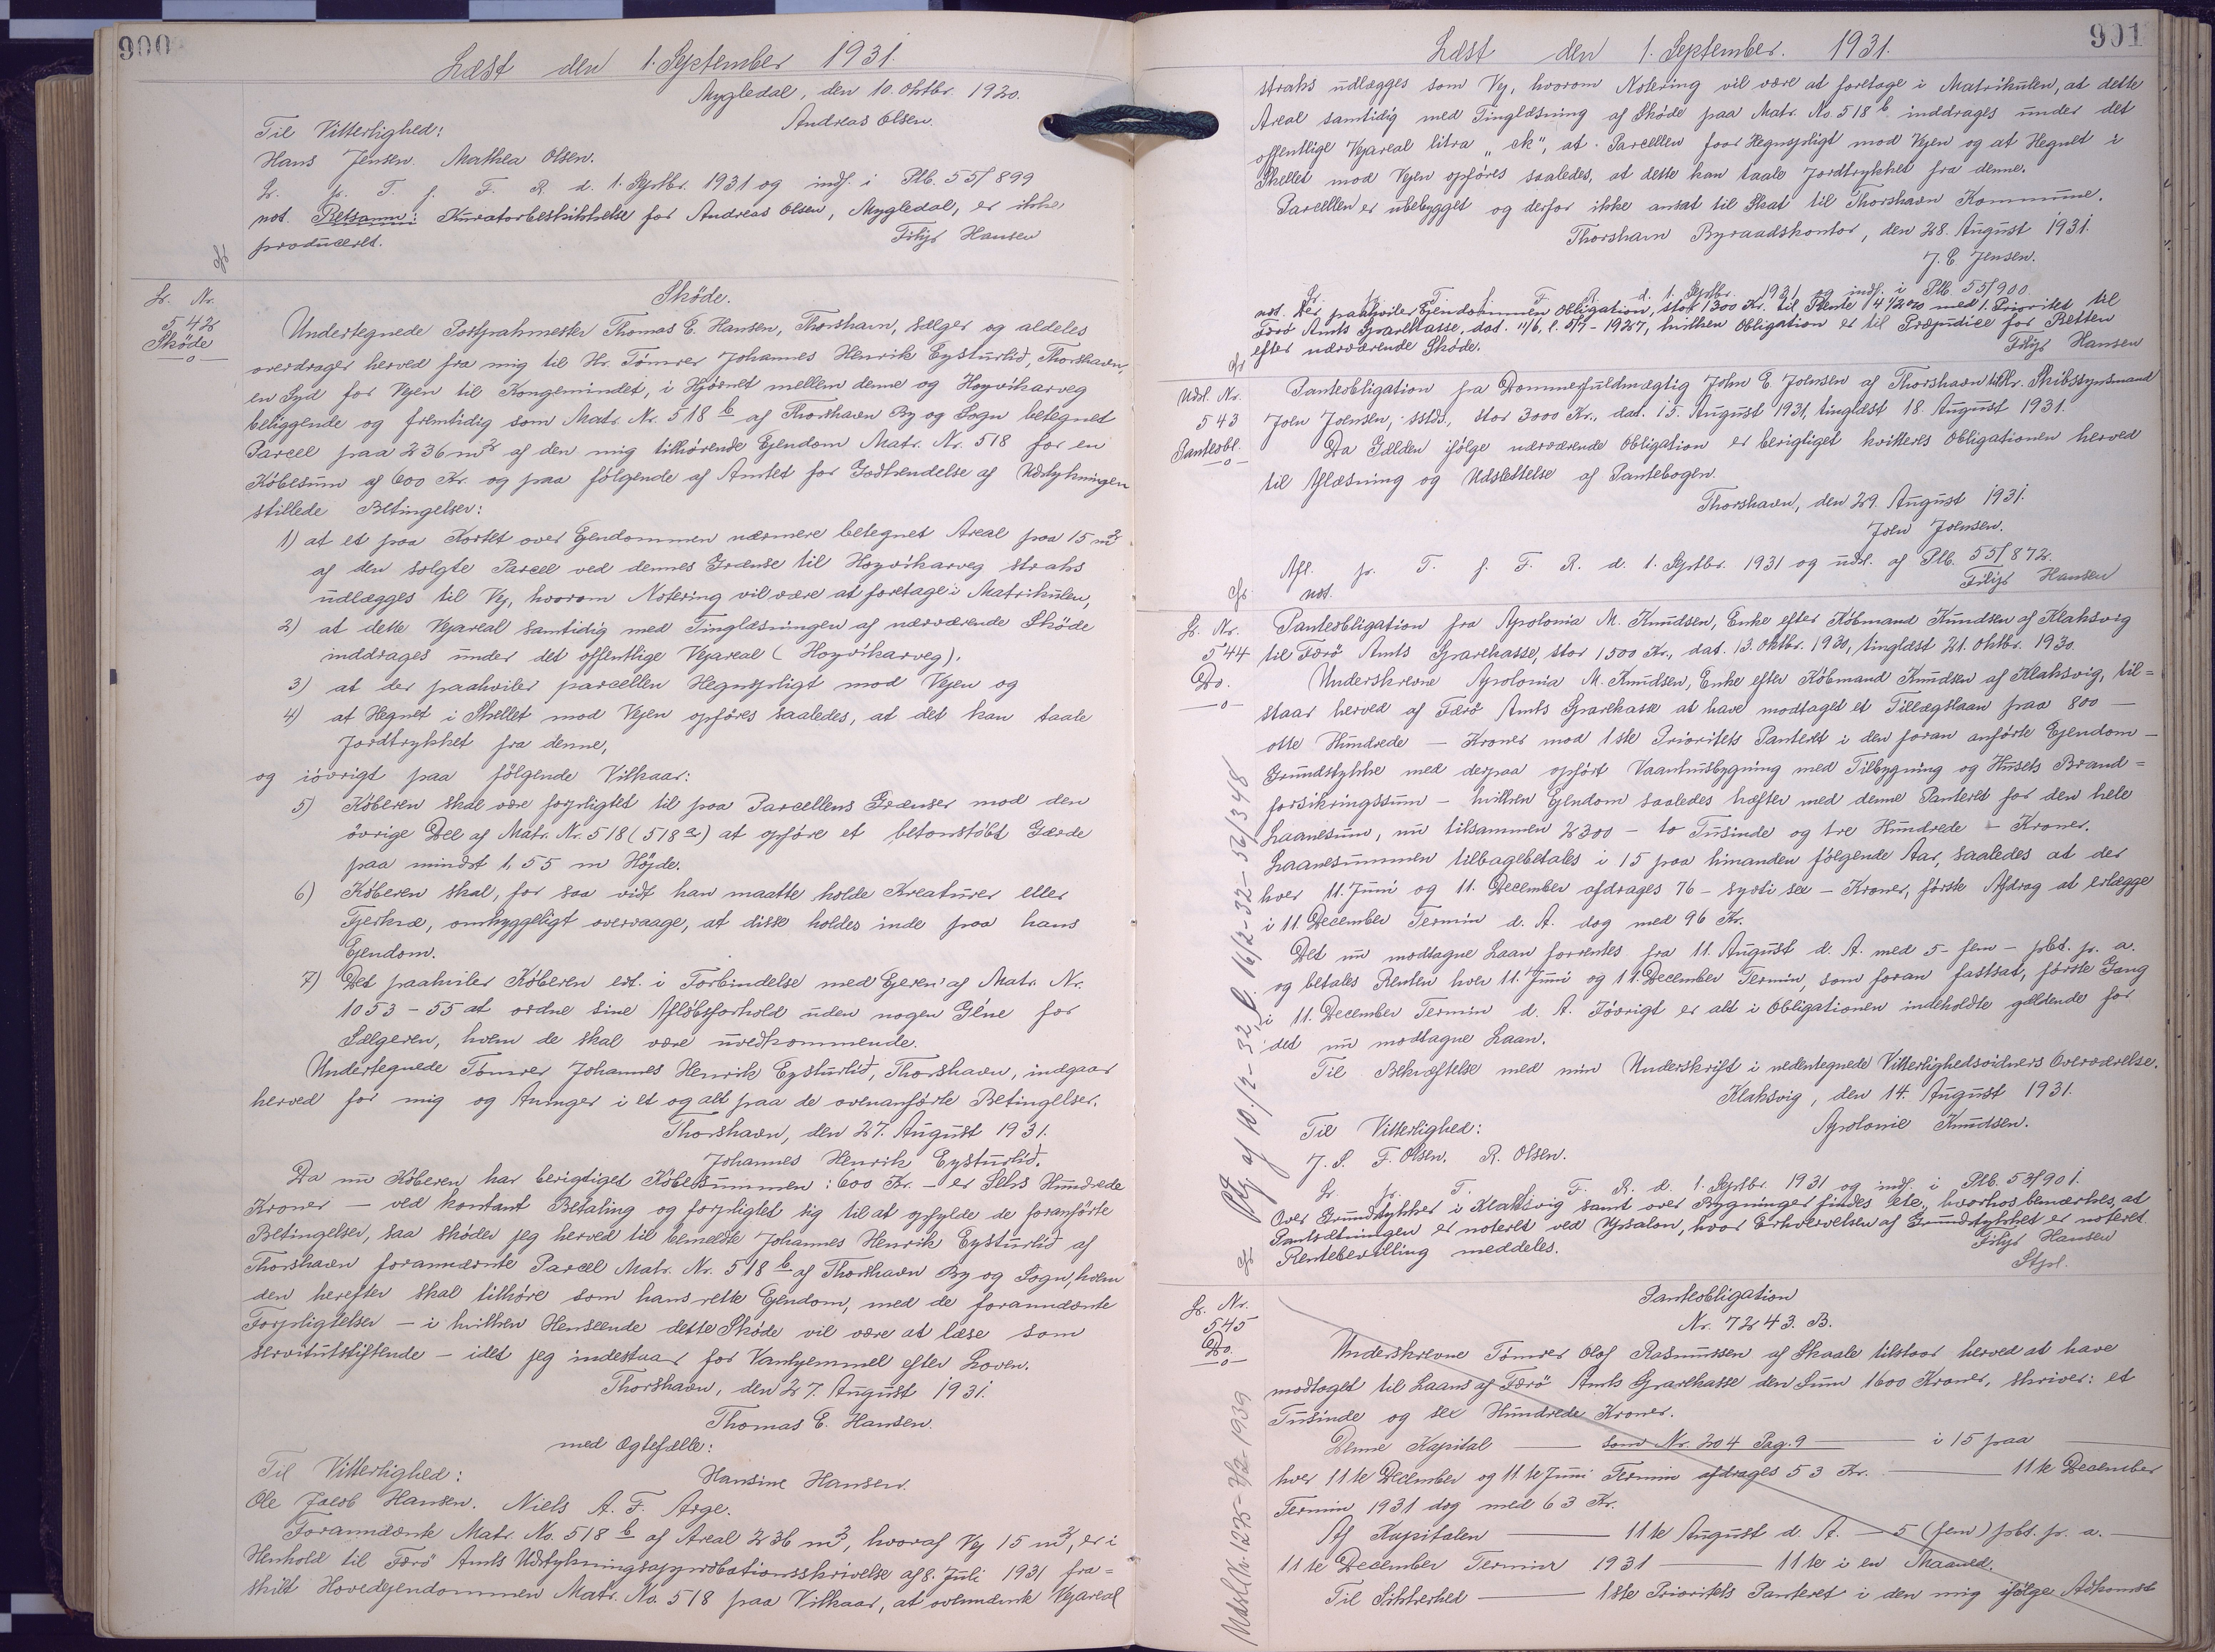 900
Læst den 1. September 1931.
Mygledal, den 10. Oktbr. 1920.
Til Vitterlighed:
Andreas Olsen.
Hans Jensen. Mathea Olsen.
Lr. fr. T. f. F. R. d. 1. Septbr. 1931 og indf. i Ptb. 55/899
not. Retsanm: Kuratorbeskikkelse for Andreas Olsen, Mygledal, er ikke
produceret.
Filip Hansen
Lr. Nr.
542
Sköde
—o—
Sköde.
Undertegnede Postpakmester Thomas E. Hansen, Thorshavn, sælger og aldeles
overdrager herved fra mig til Hr. Tömrer Johannes Henrik Eysturlid, Thorshavn,
en Syd for Vejen til Kongemindet, i Hjörnet mellem denne og Hoyvikarveg
beliggende og fremtidig som Matr. Nr. 518 b af Thorshavn By og Sogn betegnet
Parcel paa 236 m2 af den mig tilhörende Ejendom Matr. Nr. 518 for en
Köbesum af 600 Kr. og paa fölgende af Amtet for Godkendelse af Udstykningen
stillede Betingelser:
1) at et paa Kortet over Ejendommen nærmere betegnet Areal paa 15 m2
af den solgte Parcel ved dennes Grænse til Hoyvikarveg straks
udlægges til Vej, hvorom Notering vil være at foretage i Matrikulen,
2) at dette Vejareal samtidig med Tinglæsningen af nærværende Sköde
inddrages under det offentlige Vejareal (Hoyvikarveg).
3) at der paahviler parcellen Hegnspligt mod Vejen og
4) at Hegnet i Skellet mod Vejen opföres saaledes, at det kan taale
Jordtrykket fra denne,
og iövrigt paa fölgende Vilkaar:
5) Köberen skal være forpligtet til paa Parcellens Grænser mod den
övrige Del af Matr. Nr. 518 (518 a) at opföre et betonstöbt Gærde
paa mindst 1,55 m Höjde.
6) Köberen skal, for saa vidt han maatte holde Kreaturer eller
Fjerkræ, omhyggeligt overvaage, at disse holdes inde paa hans
Ejendom.
7) Det paahviler Köberen evt. i Forbindelse med Ejeren af Matr. Nr.
1053-55 at ordne sine Aflöbsforhold uden nogen Gêne for
Sælgeren, hvem de skal være uvedkommende.
Undertegnede Tömrer Johannes Henrik Eysturlid, Thorshavn, indgaar
herved for mig og Arvinger i et og alt paa de ovenanförte Betingelser.
Thorshavn, den 27. August 1931.
Johannes Henrik Eysturlid.
Da nu Köberen har berigtiget Köbesummen: 600 Kr. - er Seks Hundrede
Kroner — ved kontant Betaling og forpligtet sig til at opfylde de foranförte
Betingelser, saa sköder jeg herved til bemeldte Johannes Henrik Eysturlid af
Thorshavn forannævnte Parcel Matr. Nr. 518 b af Thorshavn By og Sogn, hvem
den herefter skal tilhöre som hans rette Ejendom, med de forannævnte
Forpligtelser - i hvilken Henseende dette Sköde vil være at læse som
servitutstiftende - idet jeg indestaar for Vanhjemmel efter Loven.
Thorshavn, den 27. August 1931.
Thomas E. Hansen.
med Ægtefælle:
Til Vitterlighed:
Hansine Hansen.
Ole Jacob Hansen. Niels A. F. Arge.
Forannævnte Matr. No. 518 b af Areal 236 m2, hvoraf Vej 15 m2, er i
Henhold til Færö Amts Udstykningsapprobationsskrivelse af 8. Juli 1931 fra=
skilt Hovedejendommen Matr. No. 518 paa Vilkaar, at ovennævnte Vejareal
901
Læst den 1. September. 1931.
straks udlægges som Vej, hvorom Notering vil være at foretage i Matrikulen, at dette
Areal samtidig med Tinglæsning af Sköde paa Matr. No. 518 b inddrages under det
offentlige Vejareal litra "ck", at Parcellen faar Hegnspligt mod Vejen og at Hegnet i
Skellet mod Vejen opföres saaledes, at dette kan taale Jordtrykket fra denne.
Parcellen er ubebygget og derfor ikke ansat til Skat til Thorshavn Kommune.
Thorshavn Byraadskontor, den 28. August 1931.
J. C Jensen.
Lr. fr. T. f. F. R. d. 1. Septbr. 1931 og indf. i Ptb 55/900
not. Der paahviler Ejendommen Obligation, stor 1300 Kr. til Rente 4 1/2% med 1. Prioritet til
Færö Amts Sparekasse, dat. 11/6, l. 5/7 - 1927, hvilken Obligation er til Præjudice for Retten
efter nærværende Sköde.
Filip Hansen
Udsl. Nr.
543
Panteobl.
—o—
Panteobligation fra Dommerfuldmægtig John E Joensen af Thorshavn til Hr. Skibssynsmand
Joen Joensen, sstds., stor 3000 Kr., dat. 15. August 1931, tinglæst 18. August 1931.
Da Gælden ifölge nærværende Obligation er berigtiget kvitteres Obligationen herved
til Aflæsning og Udslettelse af Pantebogen.
Thorshavn, den 29. August 1931.
Joen Joensen.
Afl. fr. T. f. F. R. d. 1. Septbr. 1931 og udsl. af Ptb. 55/872.
not.
Filip Hansen
Lr. Nr.
544
Do.
—o—
Panteobligation fra Apolonia M. Knudsen, Enke efter Köbmand Knudsen af Klaksvig
til Færö Amts Sparekasse, stor 1500 Kr., dat. 13. Oktbr. 1930, tinglæst 21. Oktbr. 1930.
Underskrevne Apolonia M. Knudsen, Enke efter Köbmand Knudsen af Klaksvig, til=
staar herved af Færö Amts Sparekasse at have modtaget et Tillægslaan paa 800 —
otte Hundrede — Kroner mod 1ste Prioritets Panteret i den foran anförte Ejendom —
Grundstykke med derpaa opfört Vaaninghusbygning med Tilbygning og Husets Brand=
forsikringssum - hvilken Ejendom saaledes hæfter med denne Panteret for den hele
Laanesum, nu tilsammen 2300 - to Tusinde og tre Hundrede - Kroner.
Laanesummen tilbagebetales i 15 paa hinanden fölgende Aar, saaledes at der
hver 11. Juni og 11. December afdrages 76 - syvti sex - Kroner, förste Afdrag at erlægge
i 11. December Termin d. A. dog med 96 Kr.
Det nu modtagne Laan forrentes fra 11. August d. A. med 5 - fem - pbt. p. a.
og betales Renten hver 11. Juni og 11. December Termin, som foran fastsat, förste Gang
i 11. December Termin d. A. Iövrigt er alt i Obligationen indeholdte gældende for
det nu modtagne Laan.
Til Bekræftelse med min Underskrift i nedentegnede Vitterlighedsvidners Overværelse.
Klaksvig, den 14. August 1931.
Til Vitterlighed:
Apolonie Knudsen.
J. S. F. Olsen. R. Olsen.
Lr. fr. T. f. F. R. d. 1. Septbr. 1931 og indf. i Ptb. 53/901.
Over Grundstykker i Klaksvig samt over Bygninger findes etc., hvorhos bemærkes, at
Pantsætningen er noteret ved Ypsalon, hvor Erhvervelsen af Grundstykket er noteret.
Rentebevilling meddeles.
Filip Hansen
Stpl.
Lr. Nr.
545
Do.
—o—
Panteobligation
Nr. 7243. B.
Underskrevne Tömrer Olof Rasmussen af Skaale tilstaar herved at have
modtaget til Laans af Færö Amts Sparekasse den Sum 1600 Kroner, skriver: et
Tusinde og sex Hundrede Kroner.
Denne Kapital — som Nr. 204 Pag. 9 — i 15 paa —
hver 11te December og 11te Juni Termin afdrages 53 Kr. — 11te December
Termin 1931 dog med 63 Kr.
Af Kapitalen — 11te August d. A. — 5 (fem) pbt. p. a. —
11te December Termin 1931 — 11te i en Maaned.
Til Sikkerhed — 1ste Prioritets Panteret i den mig ifölge Adkomst